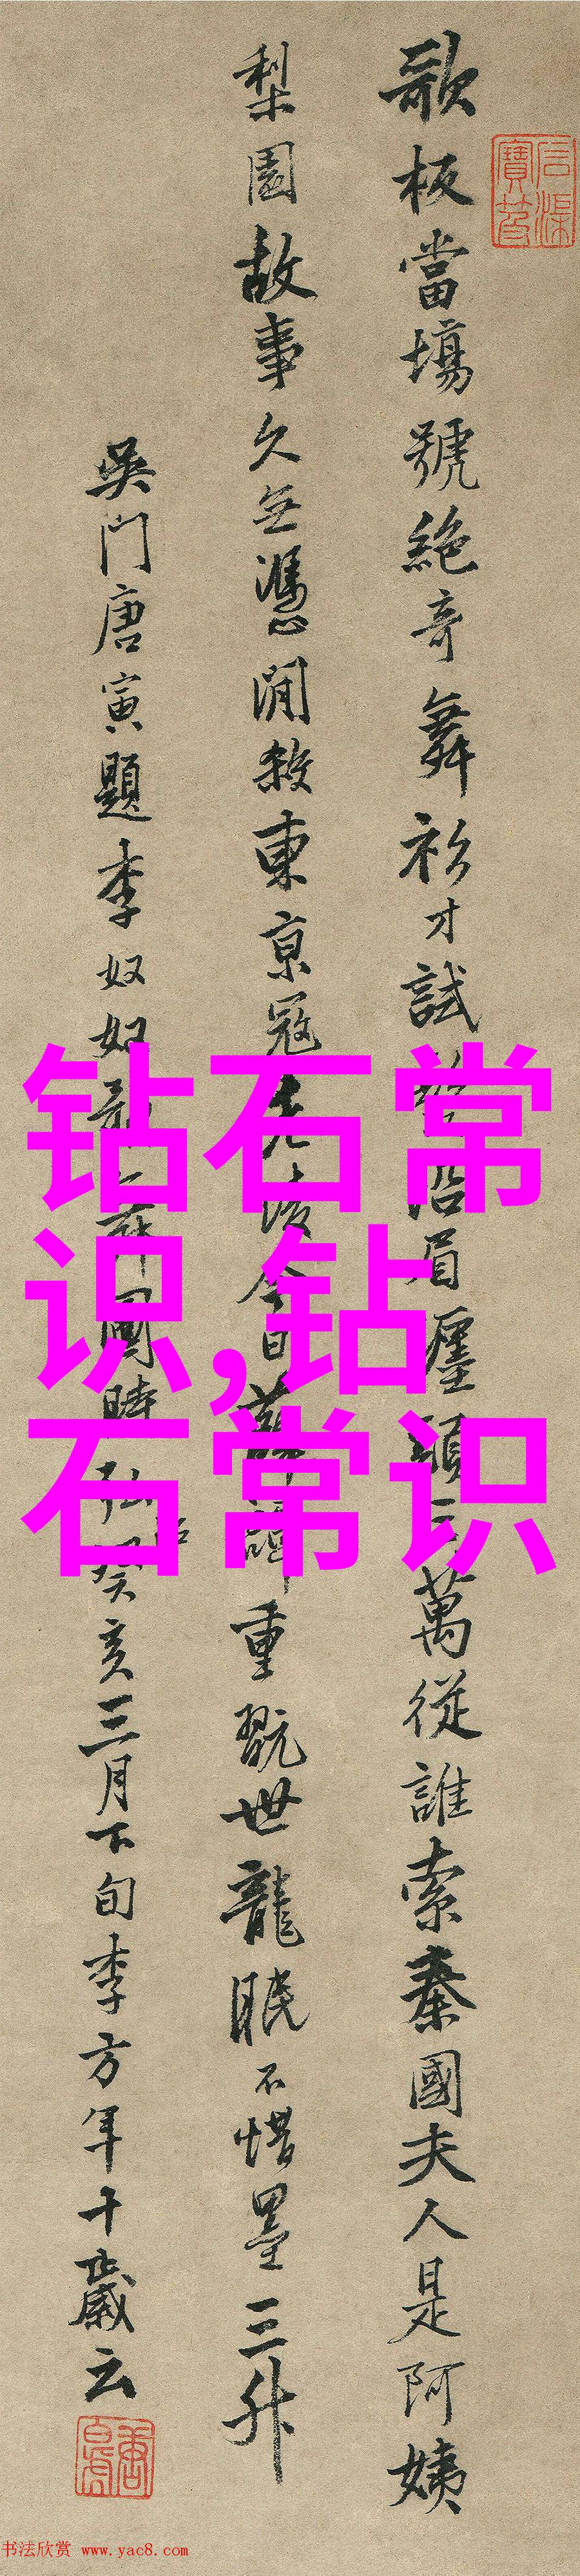 歌板當場號絕奇舞衫才試
眉
頭
萬從誰索秦國夫人是阿姨
梨園故事久無憑閒殺東京冠
今日
重翫世龍眠不惜墨三升
吳門唐寅題李奴奴
弘
癸亥三月下旬李方年十歲云
钻石常
识,钻
石常识
书法欣赏 www.yac8.com